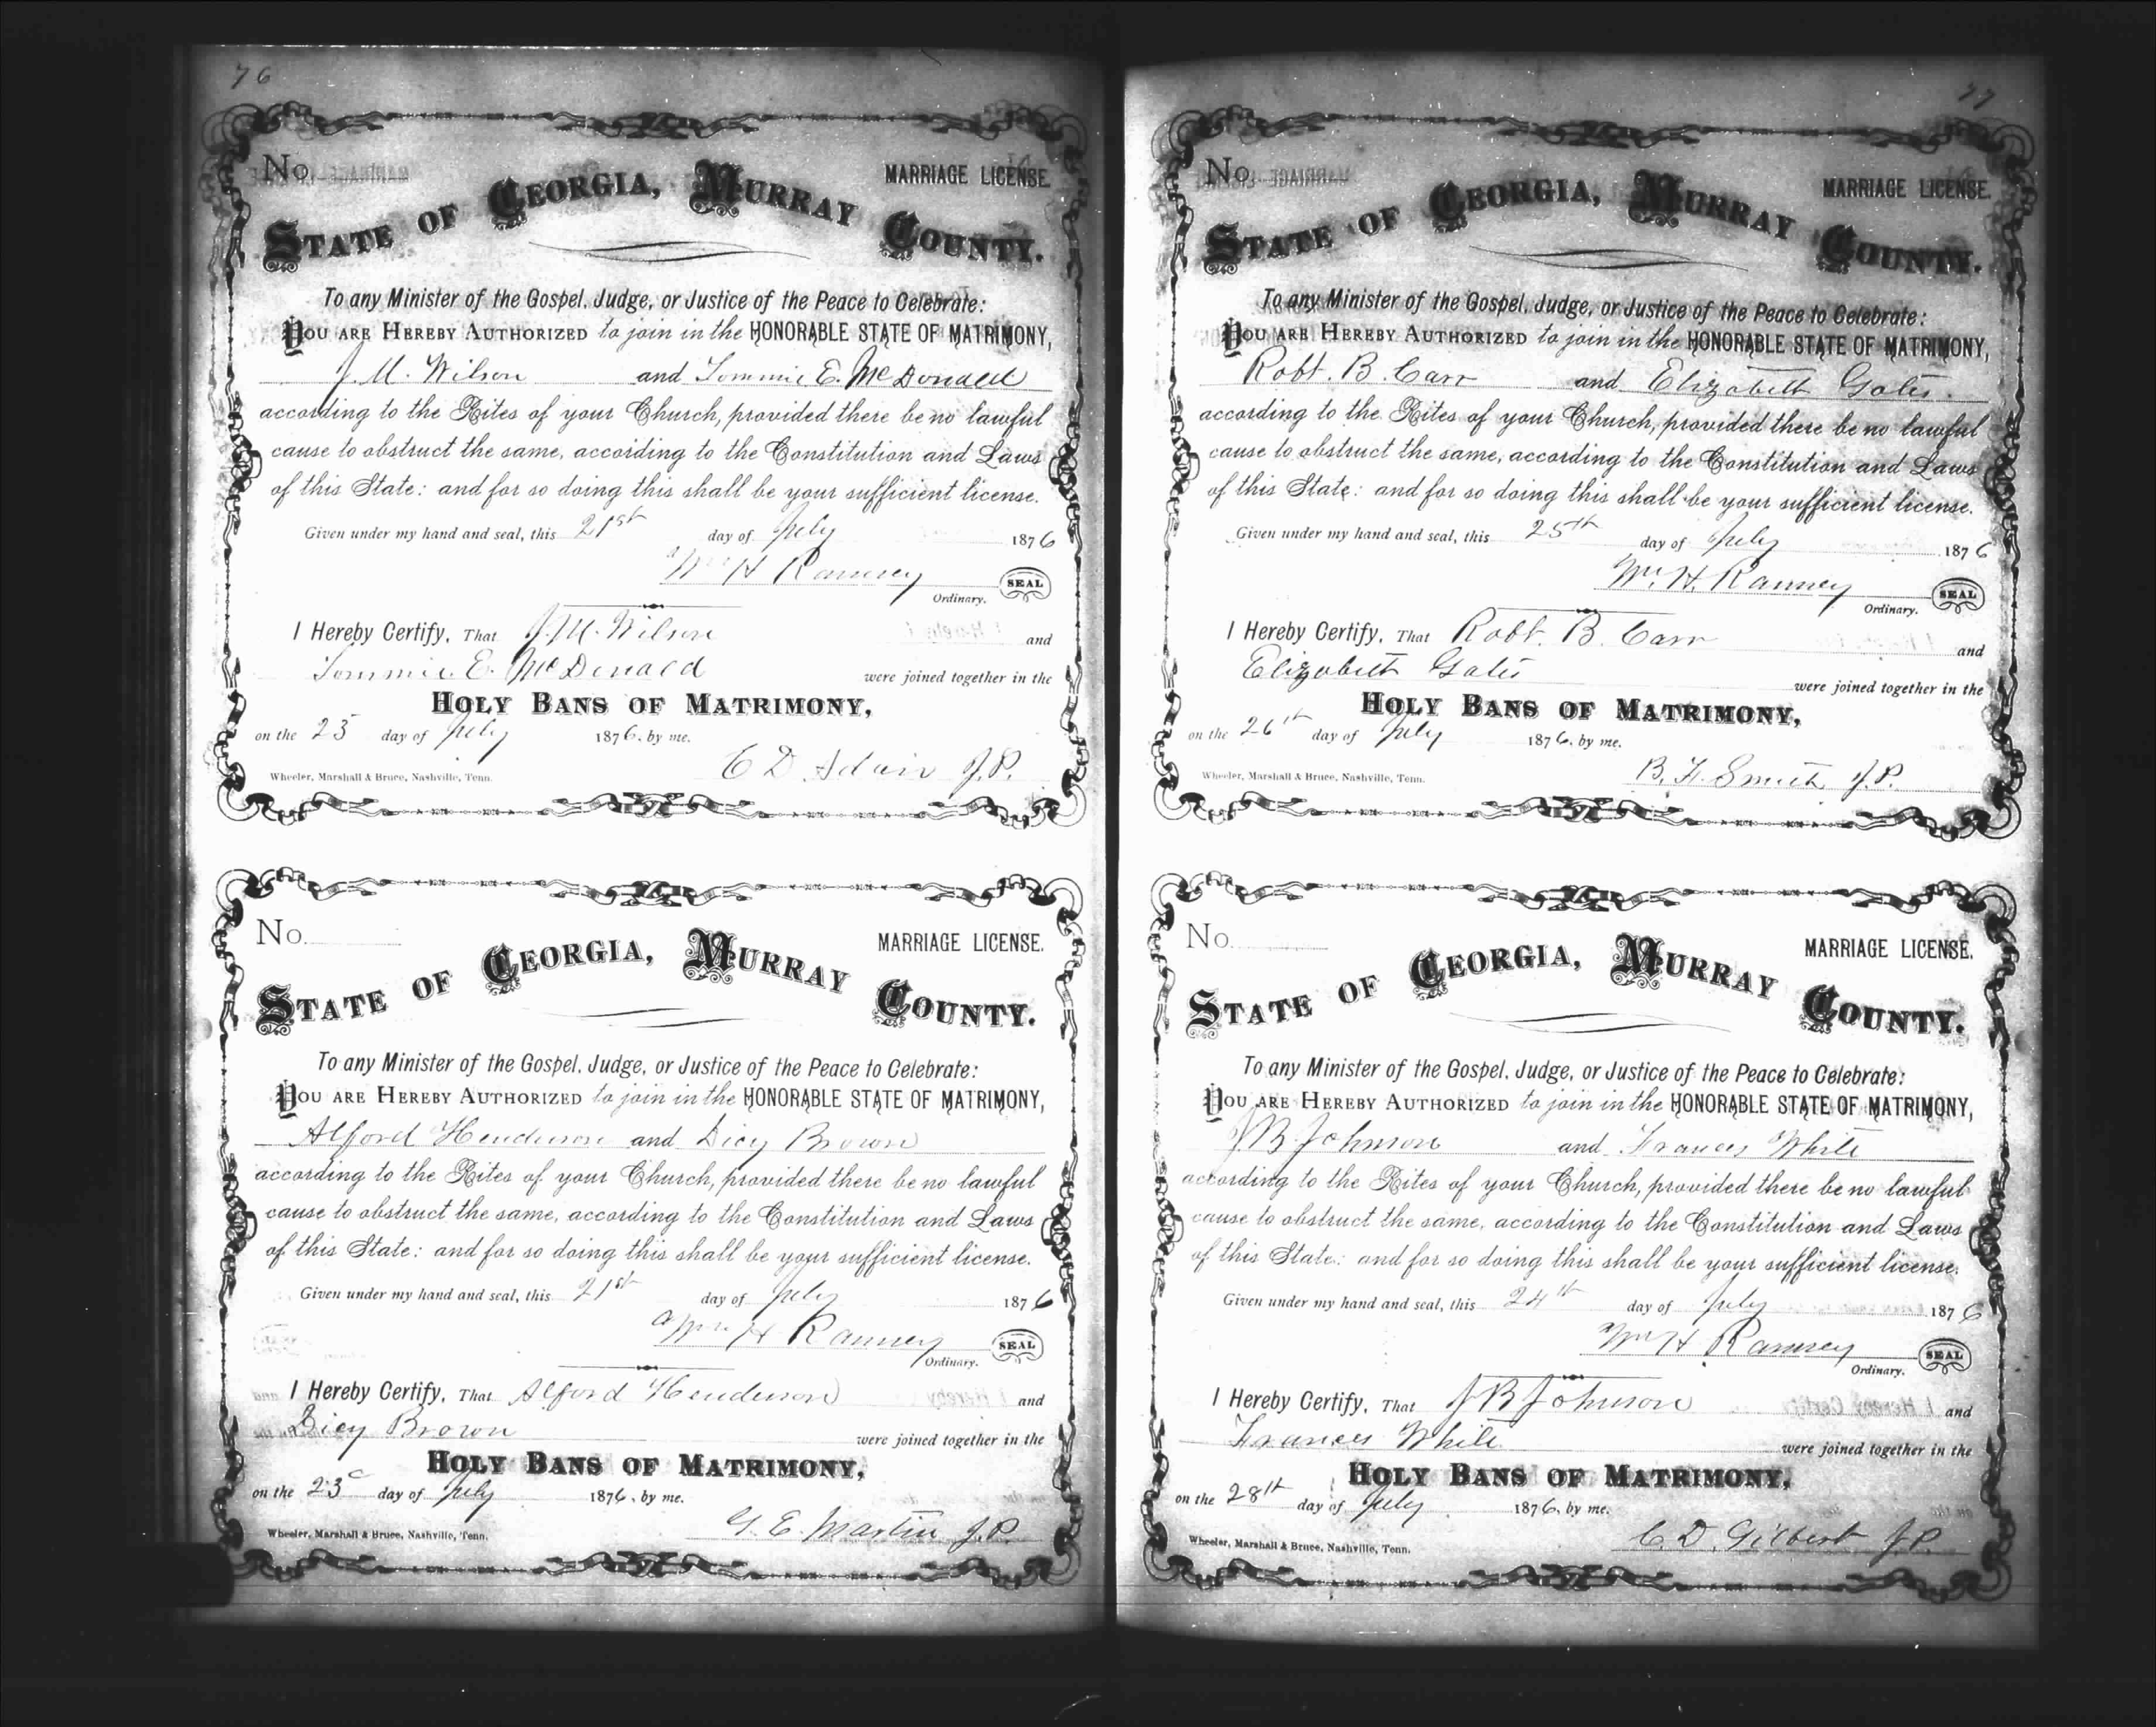 76
No.
MARRIAGE LICENSE.
STATE OF GEORGIA, MURRAY COUNTY.
To any Minister of the Gospel, Judge, or Justice of the Peace to Celebrate:
YOU ARE HEREBY AUTHORIZED to join in the HONORABLE STATE OF MATRIMONY,
J. M. Wilson and Tommie E. McDonald
according to the Rites of your Church, provided there be no lawful
cause to obstruct the same, according to the Constitution and Laws
of this State: and for so doing this shall be your sufficient license.
Given under my hand and seal, this 21st day of July 1876
Wm H Ramsey SEAL
Ordinary.
I Hereby Certify, That J. M. Wilson and
Tommie E. McDonald were joined together in the
HOLY BANS OF MATRIMONY,
on the 25 day of July 1876, by me.
C D Adair J.P.
Wheeler, Marshall & Bruce, Nashville, Tenn.
No.
MARRIAGE LICENSE.
STATE OF GEORGIA, MURRAY COUNTY.
To any Minister of the Gospel, Judge, or Justice of the Peace to Celebrate:
YOU ARE HEREBY AUTHORIZED to join in the HONORABLE STATE OF MATRIMONY,
Alford Henderson and Dicy Brown
according to the Rites of your Church, provided there be no lawful
cause to obstruct the same, according to the Constitution and Laws
of this State: and for so doing this shall be your sufficient license.
Given under my hand and seal, this 21st day of July 1876
Wm H Ramsey SEAL
Ordinary.
I Hereby Certify, That Alford Henderson and
Dicy Brown were joined together in the
HOLY BANS OF MATRIMONY,
on the 23d day of July 1876, by me.
G. E. Martin J.P.
Wheeler, Marshall & Bruce, Nashville, Tenn.
77
No.
MARRIAGE LICENSE.
STATE OF GEORGIA, MURRAY COUNTY.
To any Minister of the Gospel, Judge, or Justice of the Peace to Celebrate:
YOU ARE HEREBY AUTHORIZED to join in the HONORABLE STATE OF MATRIMONY,
Robt. B. Carr and Elizabeth Gates.
according to the Rites of your Church, provided there be no lawful
cause to obstruct the same, according to the Constitution and Laws
of this State: and for so doing this shall be your sufficient license.
Given under my hand and seal, this 25th day of July 1876
Wm. H. Ramsey SEAL
Ordinary.
I Hereby Certify, That Robt. B. Carr and
Elizabeth Gates were joined together in the
HOLY BANS OF MATRIMONY,
on the 26th day of July 1876, by me.
B. F. Smith J.P.
Wheeler, Marshall & Bruce, Nashville, Tenn.
No.
MARRIAGE LICENSE.
STATE OF GEORGIA, MURRAY COUNTY.
To any Minister of the Gospel, Judge, or Justice of the Peace to Celebrate:
YOU ARE HEREBY AUTHORIZED to join in the HONORABLE STATE OF MATRIMONY,
J B Johnson and Frances White
according to the Rites of your Church, provided there be no lawful
cause to obstruct the same, according to the Constitution and Laws
of this State: and for so doing this shall be your sufficient license.
Given under my hand and seal, this 24th day of July 1876
Wm H Ramsey SEAL
Ordinary.
I Hereby Certify, That J B Johnson and
Frances White were joined together in the
HOLY BANS OF MATRIMONY,
on the 28th day of July 1876, by me.
C. D. Gilbert J.P.
Wheeler, Marshall & Bruce, Nashville, Tenn.